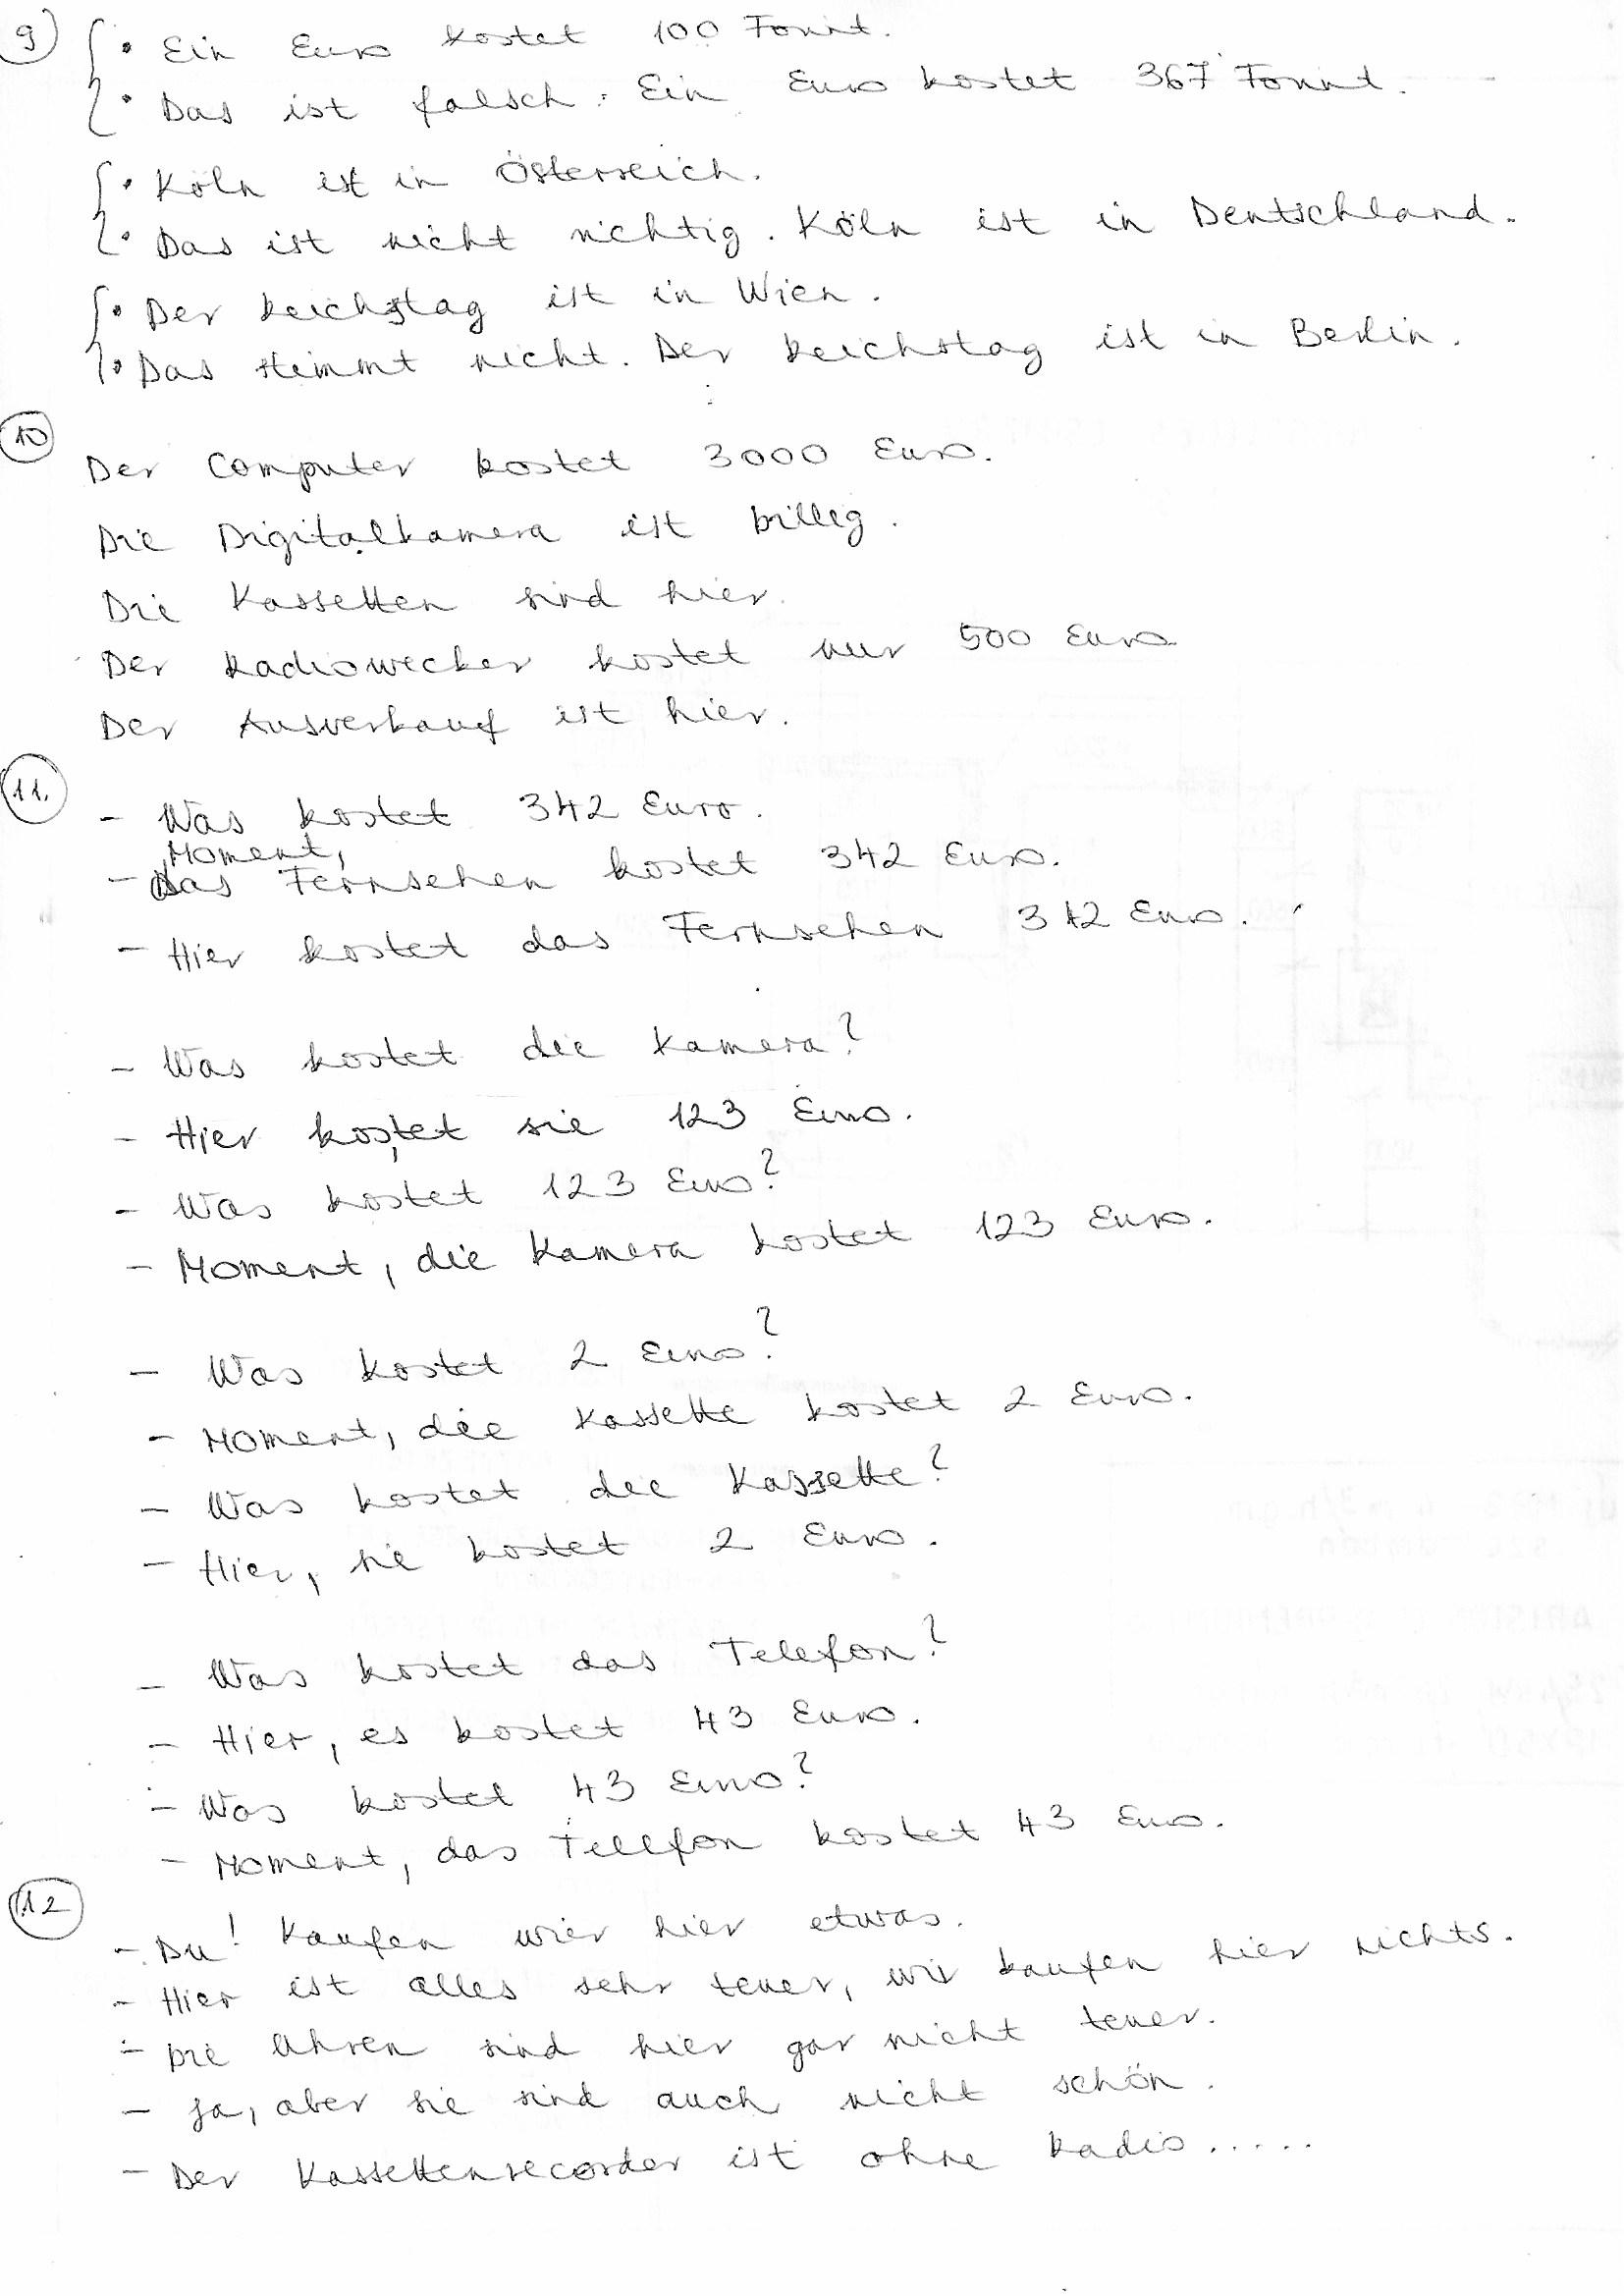 9)
• Ein Euro kostet 100 Forint.
• Das ist falsch. Ein Euro kostet 367 Forint.
• Köln ist in Österreich.
• Das ist nicht richtig. Köln ist in Deutschland.
• Der Reichstag ist in Wien.
• Das stimmt nicht. Der Reichstag ist in Berlin.
10
Der Computer kostet 3000 Euro.
Die Digitalkamera ist billig.
Die Kassetten sind hier.
Der Radiowecker kostet nur 500 Euro
Der Ausverkauf ist hier.
11.
- Was kostet 342 Euro.
Moment,
- das Fernsehen kostet 342 Euro.
- Hier kostet das Fernsehen 342 Euro.
- Was kostet die Kamera?
- Hier kostet sie 123 Euro.
- Was kostet 123 Euro?
- Moment, die Kamera kostet 123 Euro.
- Was kostet 2 Euro?
- Moment, die Kassette kostet 2 Euro.
- Was kostet die Kassette?
- Hier, sie kostet 2 Euro.
- Was kostet das Telefon?
- Hier, es kostet 43 Euro.
- Was kostet 43 Euro?
- Moment, das Telefon kostet 43 Euro.
12
- Du! Kaufen wier hier etwas.
- Hier ist alles sehr teuer, wir kaufen hier nichts.
- Die Uhren sind hier gar nicht teuer.
- Ja, aber sie sind auch nicht schön.
- Der Kassettenrecorder ist ohne Radio.....